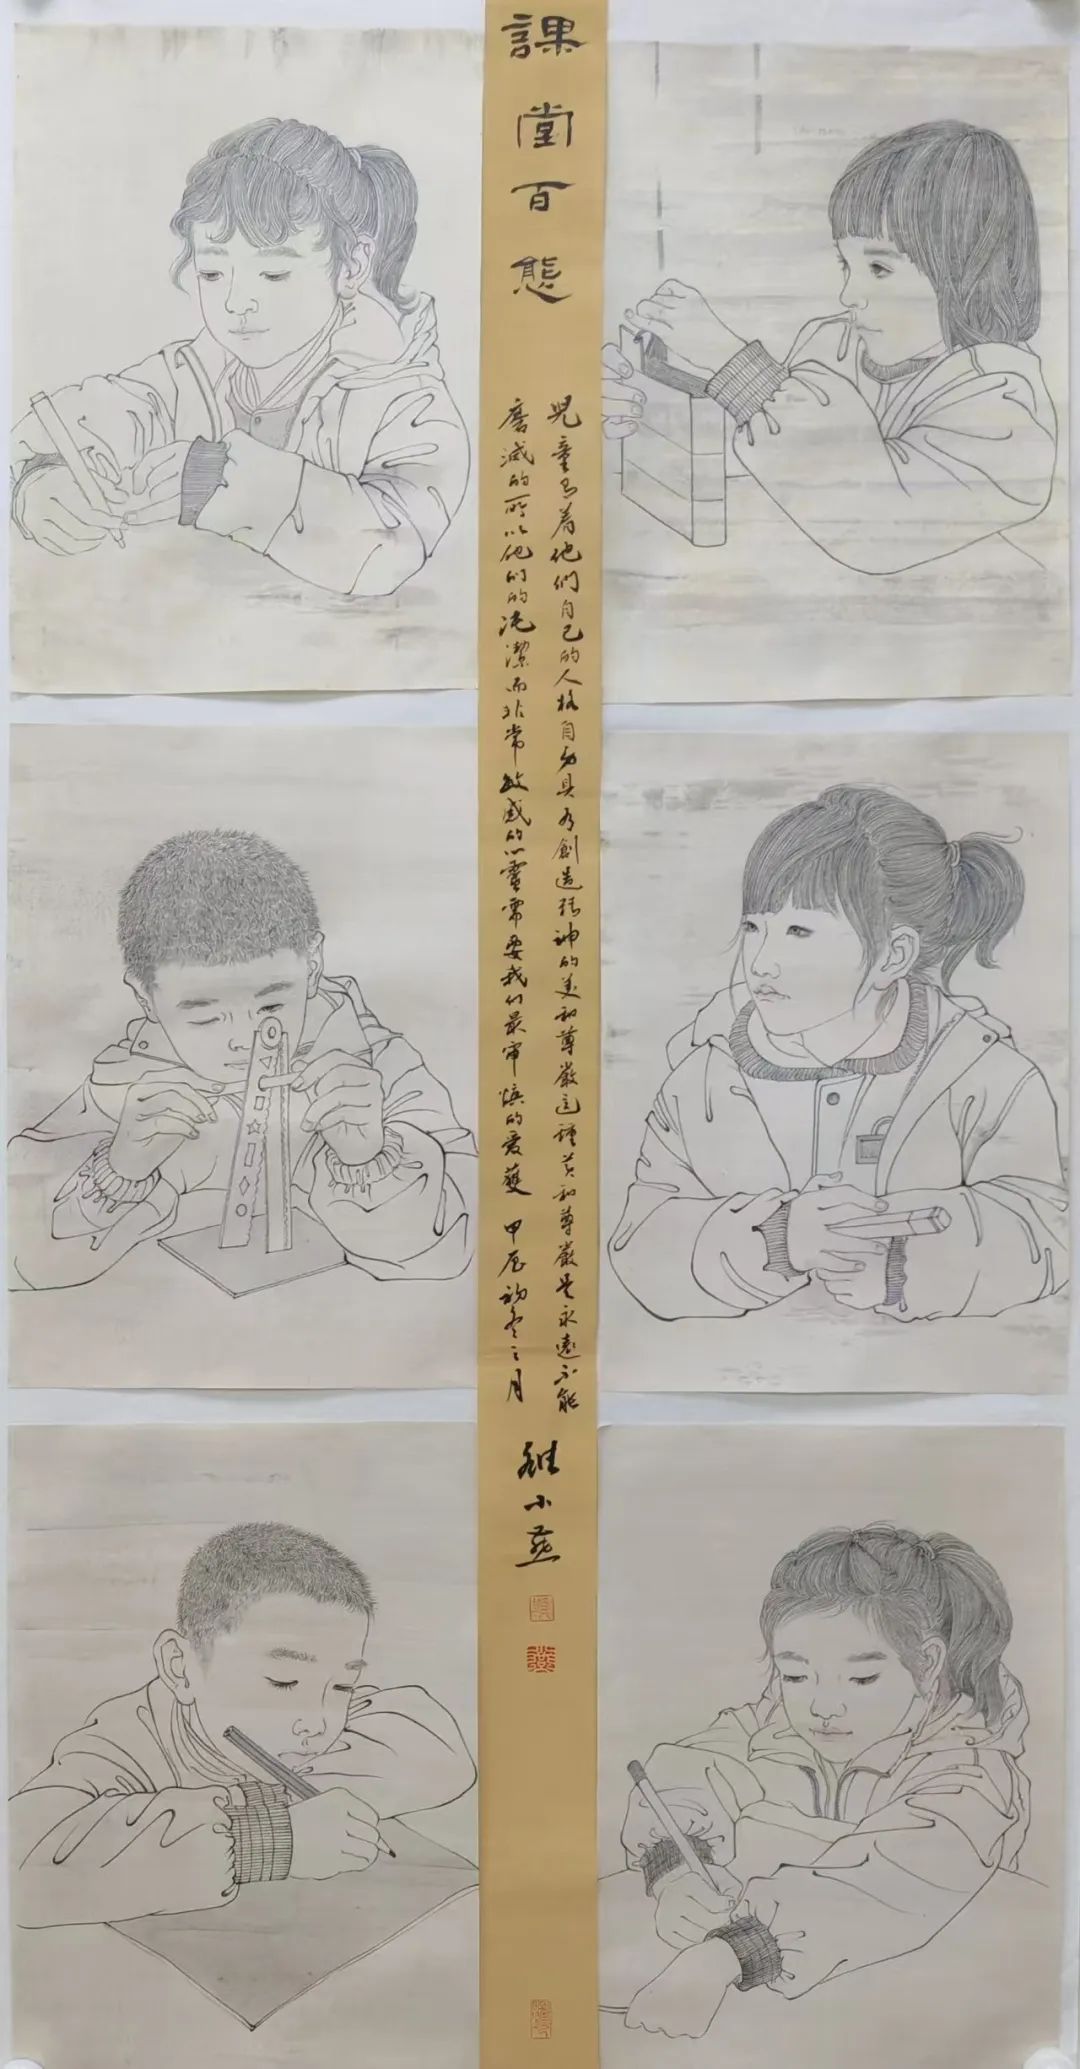 課堂百態
兒童有着他們自己的人格自身具有創造精神的美和尊嚴這種美和尊嚴是永遠不能
磨滅的所以他们的纯潔而非常敏感的心靈需要我们最审慎的爱護 甲辰初冬之月
雒小燕